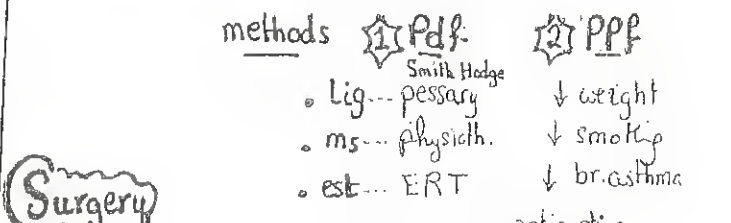 methods ① Pdf. ② PPf
Smith Hodge
• Lig... pessary ↓ weight
• ms... physioth. ↓ smoking
• est... ERT ↓ br.asthma
Surgery